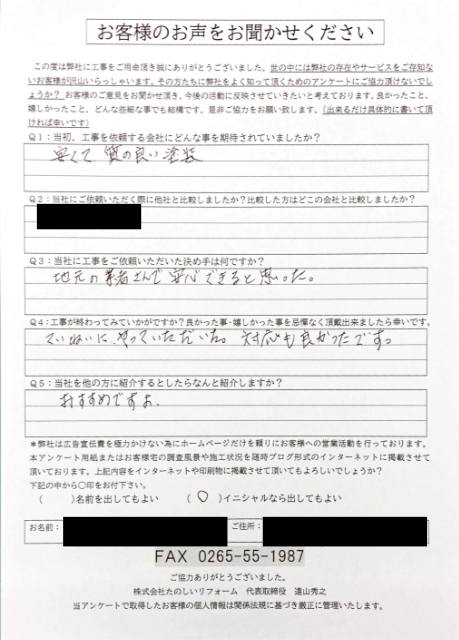 お客様のお声をお聞かせください
この度は弊社に工事をご用命頂き誠にありがとうございました。世の中には弊社の存在やサービスをご存知な
いお客様が沢山いらっしゃいます。その方たちに弊社をよく知って頂くためのアンケートにご協力頂けないでし
ょうか？ お客様のご意見をお聞かせ頂き、今後の活動に反映させていきたいと考えております。良かったこと、
嬉しかったこと、どんな些細な事でも結構です。是非ご協力をお願い致します。（出来るだけ具体的に書いて頂
ければ幸いです）
Q1：当初、工事を依頼する会社にどんな事を期待されていましたか？
安くて 質の良い塗装
Q2：当社にご依頼いただく際に他社と比較しましたか？比較した方はどこの会社と比較しましたか？
Q3：当社に工事をご依頼いただいた決め手は何ですか？
地元の業者さんで安心できると思った。
Q4：工事が終わってみていかがですか？良かった事・嬉しかった事を忌憚なく頂戴出来ましたら幸いです。
ていねいに、やっていただいた。対応も良かったです。
Q5：当社を他の方に紹介するとしたらなんと紹介しますか？
おすすめですよ。
＊弊社は広告宣伝費を極力かけない為にホームページだけを頼りにお客様への営業活動を行っております。
本アンケート用紙またはお客様宅の調査風景や施工状況を随時ブログ形式のインターネットに掲載させて
頂いております。上記内容をインターネットや印刷物に掲載させて頂いてもよろしいでしょうか？
下記の中から〇印をお付下さい。
（ ）名前を出してもよい （ 〇 ）イニシャルなら出してもよい
お名前： ご住所：
FAX 0265-55-1987
ご協力ありがとうございました。
株式会社たのしいリフォーム 代表取締役 遠山秀之
当アンケートで取得したお客様の個人情報は関係法規に基づき厳正に管理いたします。